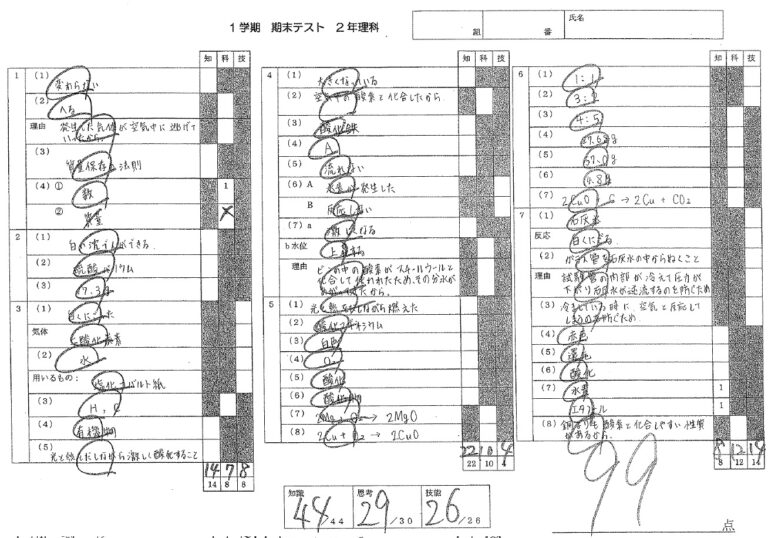 1学期 期末テスト 2年理科
組 番 氏名
知 科 技
1 (1) 変わらない
(2) へる
理由 発生した気体が空気中に逃げて
いったから。
(3) 質量保存の法則
(4) ① 数 1
②
2 (1) 白い沈でんができる。
(2) 硫酸バリウム
(3)
3 (1) 白くにごった
気体 二酸化炭素
(2) 水
用いるもの: 塩化コバルト紙
(3) H, C
(4) 有機物
(5) 光と熱をだしながら激しく酸化すること
14 7 8
14 8 8
知 科 技
4 (1) 大きくなっている
(2) 空気中の酸素と化合したから。
(3) 酸化鉄
(4) A
(5) 流れない
(6) A 水素が発生した
B 反応しない
(7) a 激しくなる
b 水位 上昇する
理由 ビンの中の酸素がスチールウールと
化合して使われたため、その分水が
5 (1) 光と熱をだしながら燃えた
(2) 酸化マグネシウム
(3) 白色
(4) O₂
(5) 酸化
(6) 酸化物
(7) 2Mg + O₂ → 2MgO
(8) 2Cu + O₂ → 2CuO
22 10 4
22 10 4
知 科 技
6 (1) 1:1
(2) 3:2
(3) 4:5
(4) 37.6g
(5)
(6) 4.8g
(7) 2CuO + C → 2Cu + CO₂
7 (1) 石灰水
反応 白くにごる
(2) ガラス管を石灰水の中からぬくこと
理由 試験管の内部が冷えて圧力が
下がり石灰水が逆流するのを防ぐため
(3) 冷ましている時に、空気と反応して
しまうのを防ぐため
(4) 赤色
(5) 還元
(6) 酸化
(7) 水素 1
エタノール 1
(8) 銅よりも酸素と化合しやすい性質
があるから。
8 12 14
8 12 14
知識 思考 技能
44/44 29/30 26/26
99 点